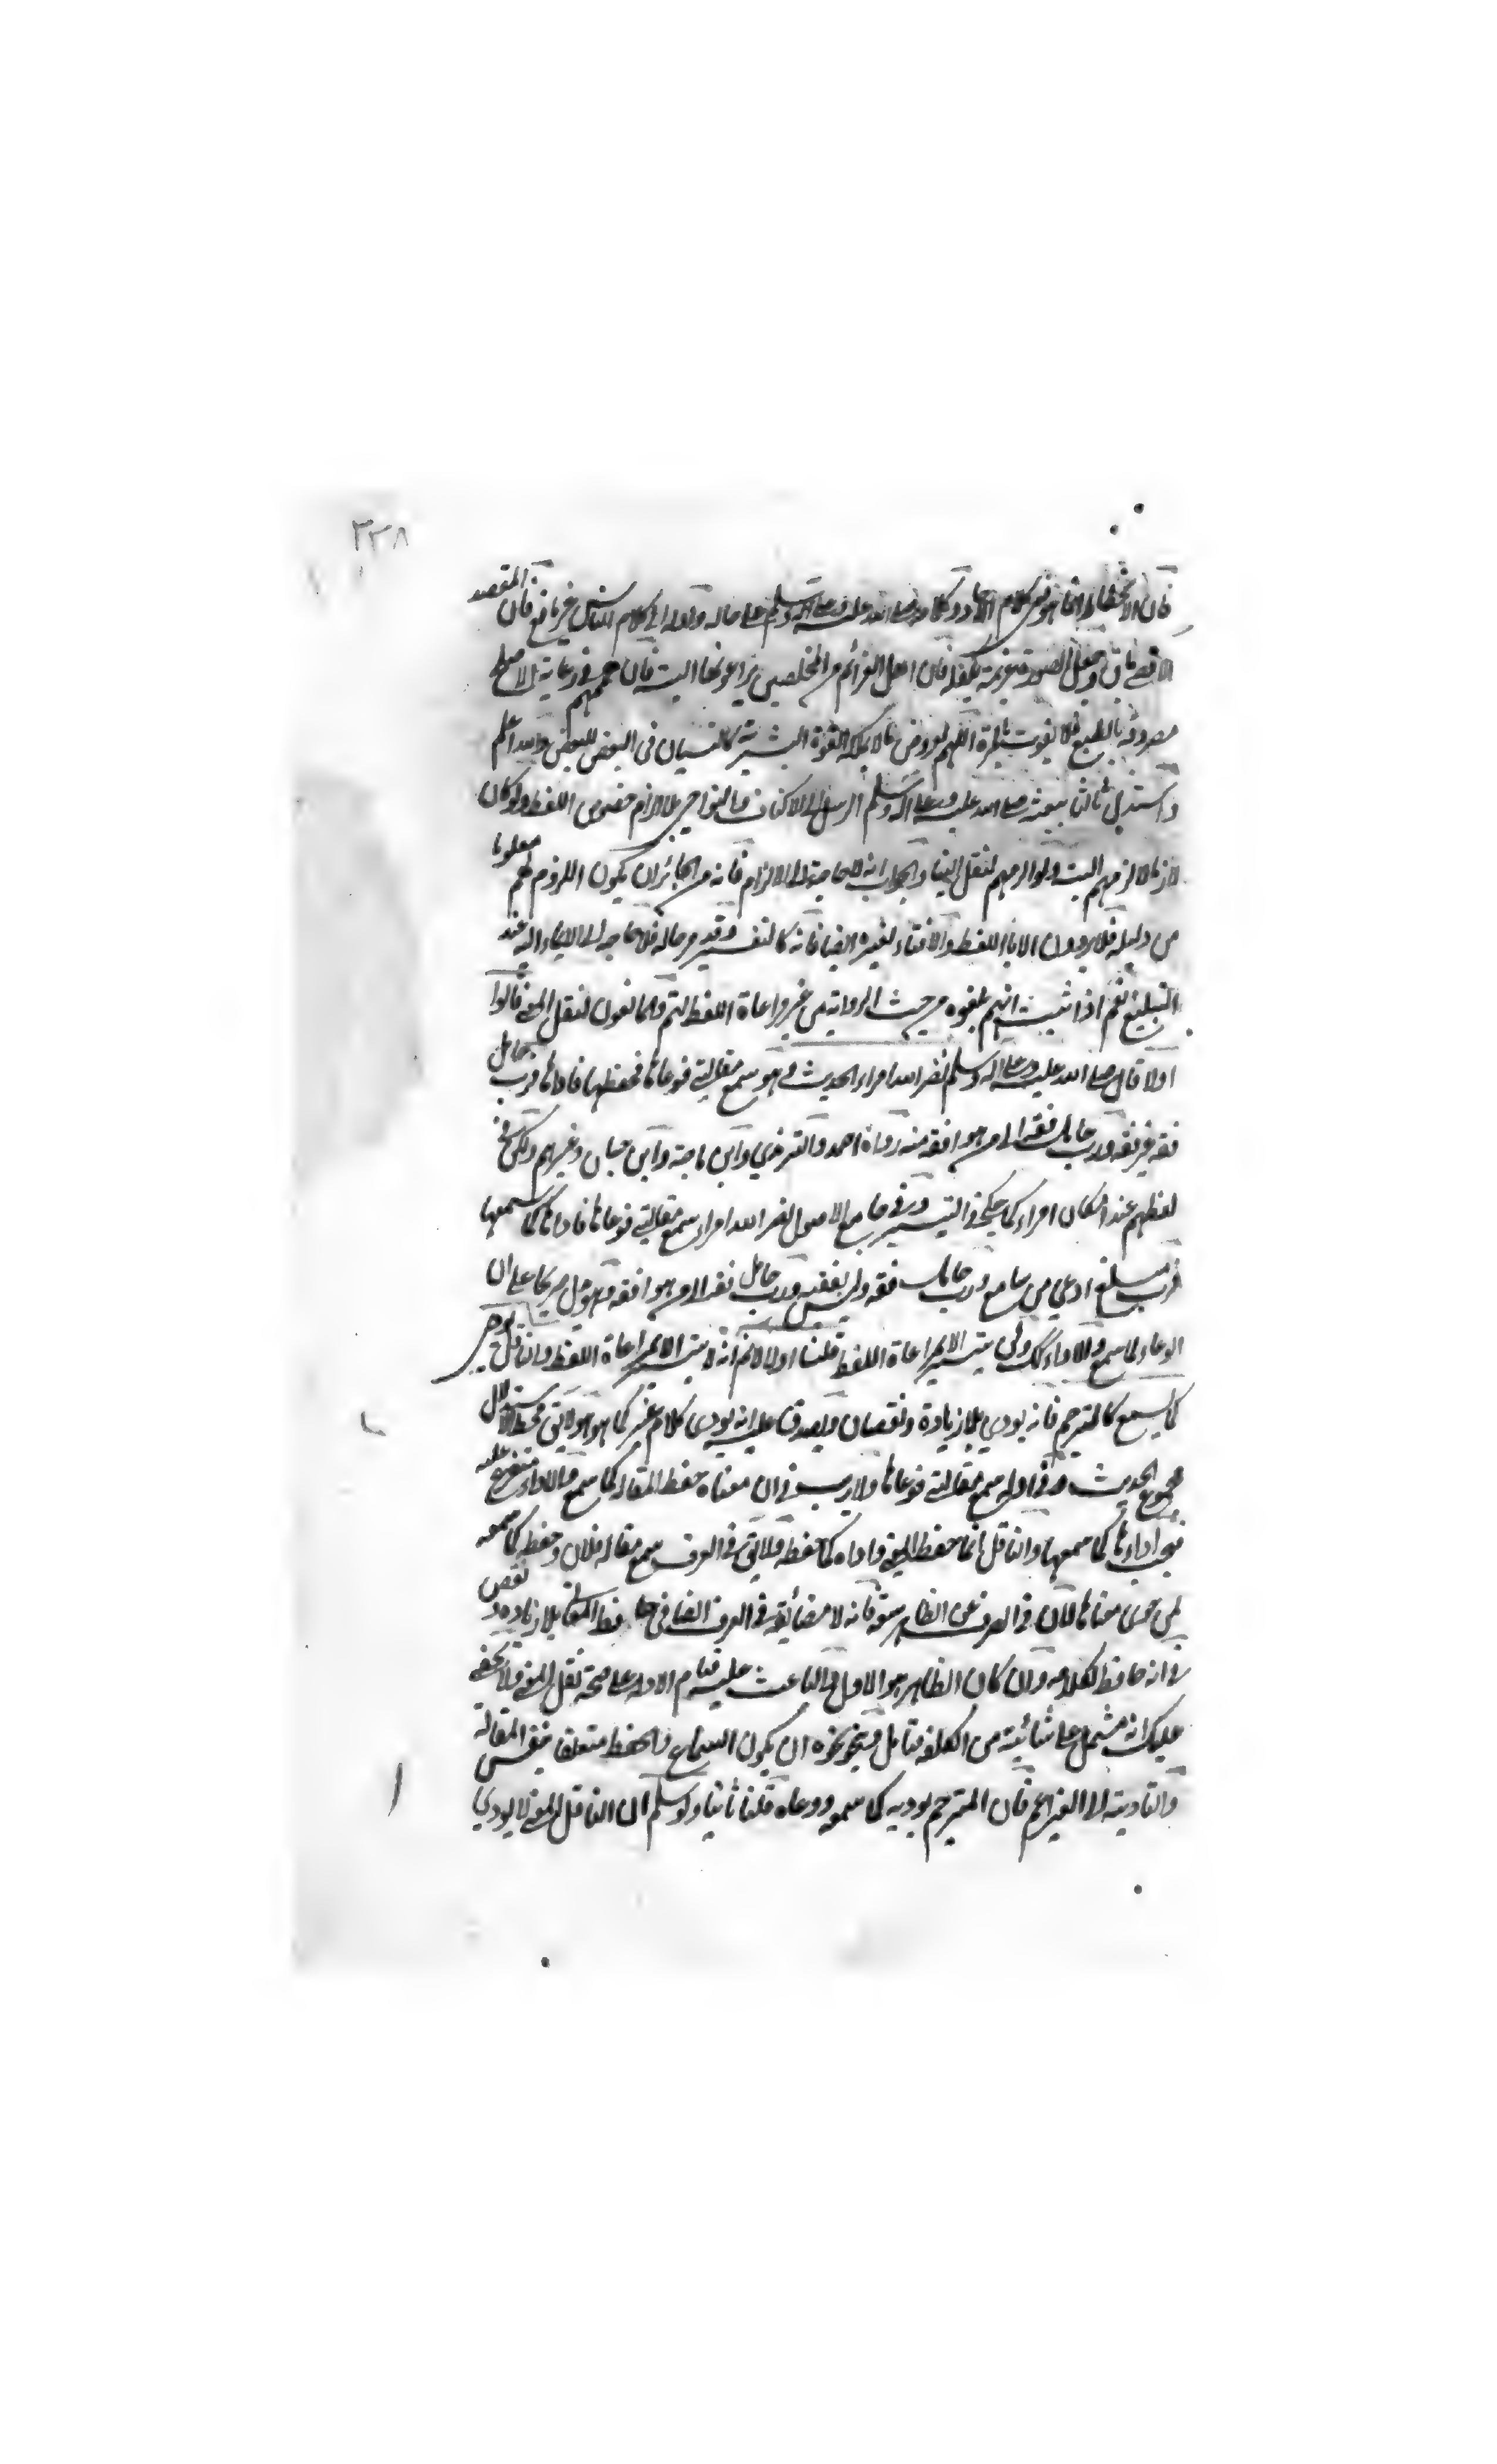 ٢٣٨
فان الانحطاط انما هو في كلام الآحاد وكلامه صلى الله عليه وعلى آله وسلم على حاله وقوله الى كلام الناس غير نافع فان المقصد
الاقصى باق وجعل الصورة عزيمة يكفيه فان اهل العزائم من المخلصين يراعونها البتة فان هممهم في رعاية الاصلح
مصروفة بالطبع فلا يفوت اللهم لعروض ما لا يملكه القوة البشرية كالنسيان في البعض للبعض والله اعلم
واستدل ثالثا ببعثه صلى الله عليه وعلى اله وسلم الرسل الى الاكناف والنواحي بلا الزام خصوص اللفظ ولو كان
لازما لالزمهم البتة ولو الزمهم لنقل الينا والجواب انه لا حاجة الى الالزام فانه من الجائز ان يكون اللزوم لهم معلوما
من دليله فلا يردون الا باللفظ والافتاء لغيره ايضا فانه كالتفسير وقد مر حاله فلا حاجة الى الايماء اليه عند
التبليغ نعم اذا ثبت انهم بلغوه من حيث الرواية من غير مراعاة اللفظ لتم والمانعون لنقل المعنى قالوا
اولا قال صلى الله عليه وعلى اله وسلم نضر الله امراء الحديث وهو سمع مقالتي فوعاها فحفظها فاداها فرب حامل
فقه غير فقه ورب حامل فقه الى من هو افقه منه رواه احمد والترمذي وابن ماجة وابن حبان وغيرهم ولكن في
لفظهم عبدا مكان امراء كما حكي في التيسير وفي جامع الاصول نضر الله امراء سمع مقالتي فوعاها فاداها كما سمعها
فرب مبلغ اوعي من سامع ورب حامل فقه وليس بفقيه ورب حامل فقه الى من هو افقه منه وهو يدل صريحا على ان
الوعاء لما سمع والاداء كك ولن يتيسر الا بمراعاة اللفظ قلنا اولا لا نم انه لا يتيسر الا بمراعاة اللفظ والناقل يؤدي
كما سمع كالمترجم فانه يودي بلا زيادة ونقصان ويصدق عليه انه يودي كلام غيره كما هو هو لا يق محط الاستدلال
مجموع الحديث وفي اوله سمع مقالتي فوعاها ولا ريب في ان معناه حفظ المقالة كما سمع والاداء متفرع عليه
فيجب اداءها كما سمعها والناقل انما حفظ المعنى واداه كما حفظه ولا يق في العرف سمع مقالة فلان وحفظه كما سمعه
لمن حوى معناها لان في العرف عن الظاهر سعة فانه لا مضائقة في العرف ايضا في حافظ المعاني بلا زيادة ونقص
انه حافظ لكلامه وان كان الظاهر هو الاول والباعث عليه قيام الادلة على صحة نقل المعنى ولا يخفى
عليك انه مشتمل على شائبة من الكلفة فتامل وينحو نحوه ان يكون السماع والحفظ متعلقا بنفس المقالة
والتادية لا الغير اعم فان المترجم يوديه كما سمعه ووعاه قلنا ثانيا ولو سلم ان الناقل بالمعنى لا يودي